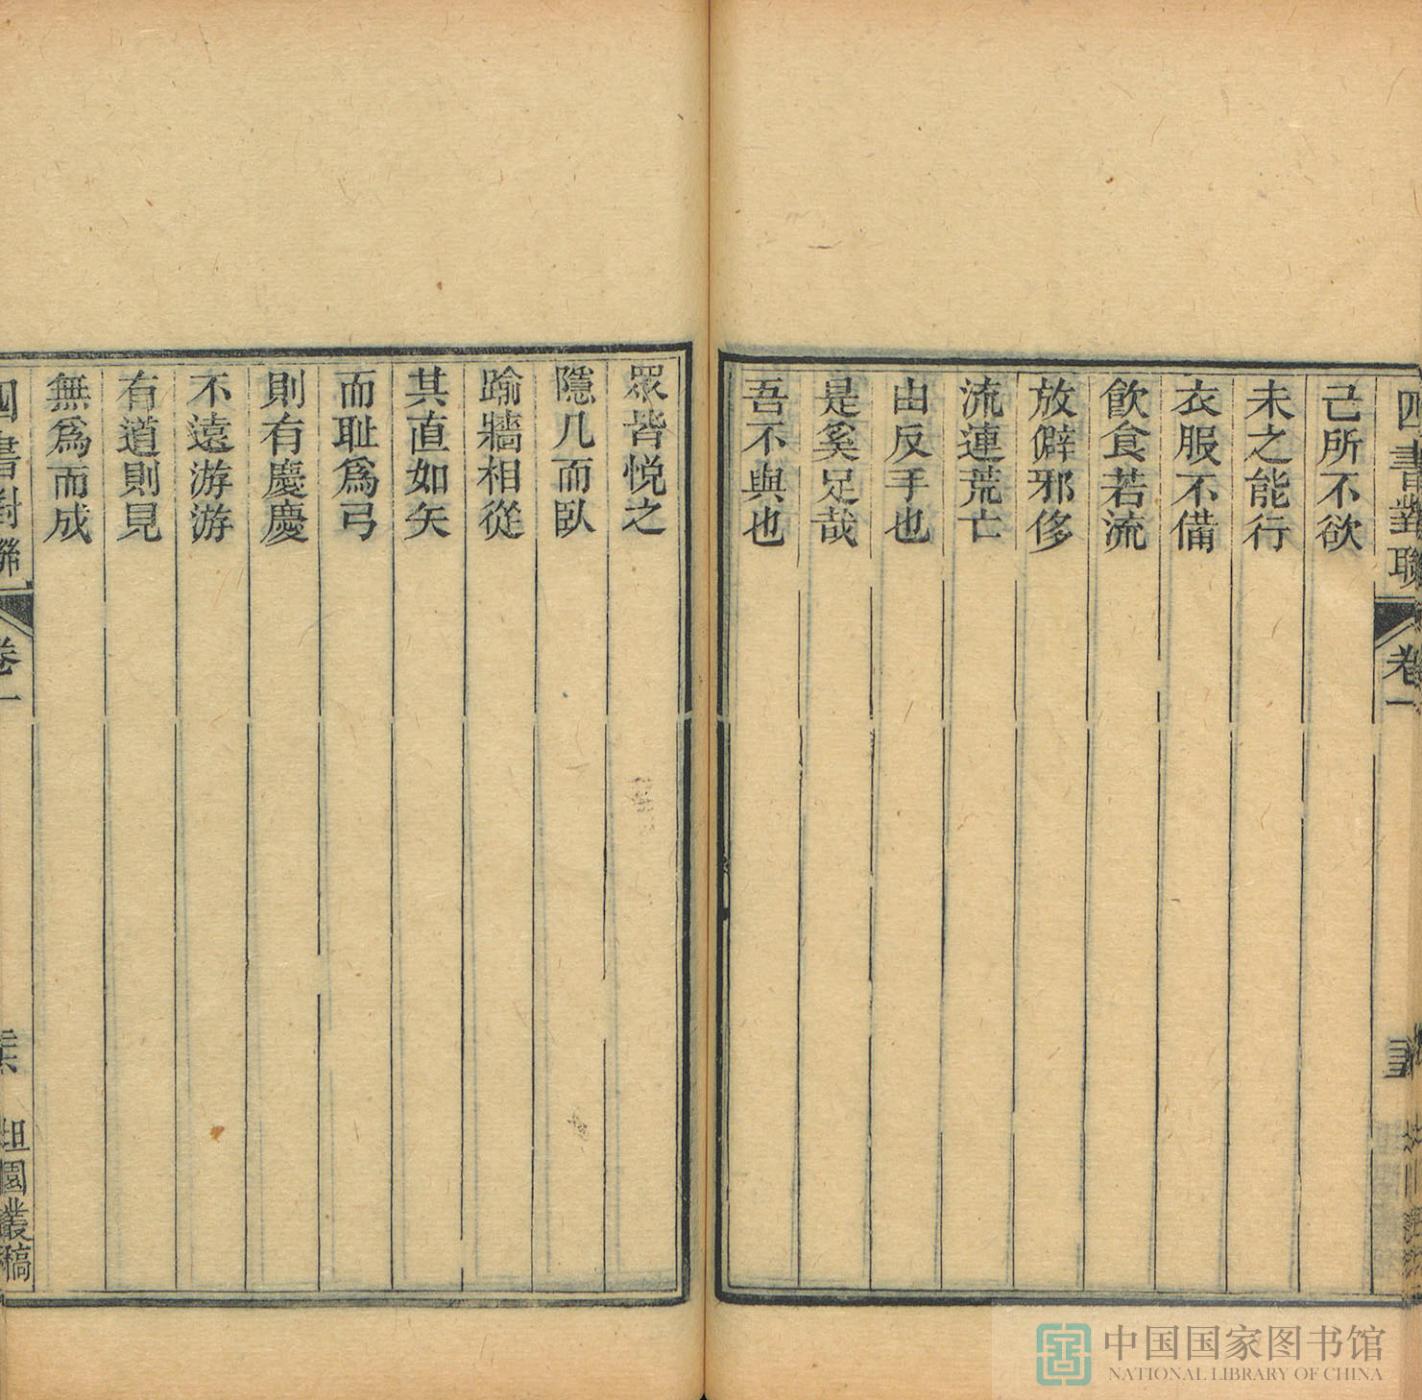 四書對聯 卷一
己所不欲
未之能行
衣服不備
飲食若流
放僻邪侈
流連荒亡
由反手也
是奚足哉
吾不與也
眾皆悅之
隱几而臥
踰牆相從
其直如矢
而耻爲弓
則有慶慶
不遠游游
有道則見
無爲而成
四書對聯 卷一
坦園叢稿
中国国家图书馆
NATIONAL LIBRARY OF CHINA